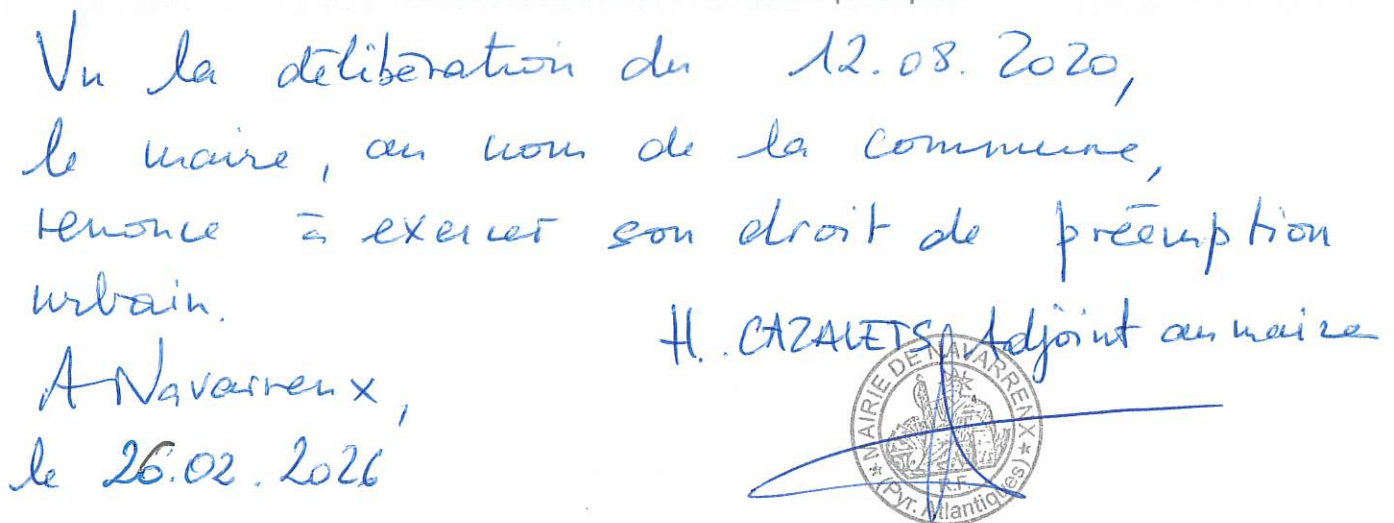 Vu la délibération du 12.08.2020,
le maire, au nom de la commune,
renonce à exercer son droit de préemption
urbain.
H. CAZALETS, Adjoint au maire
A Navarrenx,
le 26.02.2026
★ MAIRIE DE NAVARRENX ★
R.F.
(Pyr. Atlantiques)